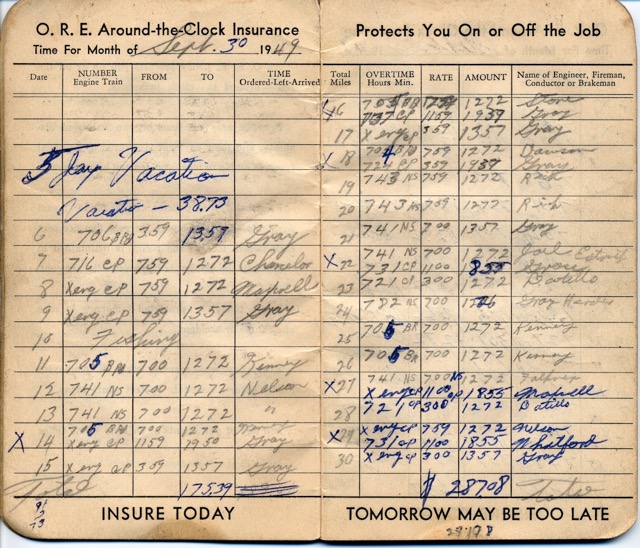 O. R. E. Around-the-Clock Insurance
Time For Month of Sept. 30 1949
Date NUMBER Engine Train FROM TO TIME Ordered-Left-Arrived
5 Day Vacation
Vacatio - 38.73
6 706 359 13.59 Gray
7 716 CP 759 1272
8 Xerg CP 759 1272 Maxwell
9 Xerg CP 359 1357 Gray
10 Fishing
11 705 700 1272 Kenney
12 741 NS 700 1272 Nelson
13 741 NS 700 1272 "
705 700 1272
X 14 Xerg CP 1159 1950 Gray
15 Xerg CP 359 1357 Gray
Total 17539
INSURE TODAY
Protects You On or Off the Job
Total Miles OVERTIME Hours Min. RATE AMOUNT Name of Engineer, Fireman, Conductor or Brakeman
1272 Stone
X 16 737 CP 1159 1939 Gray
17 Xerg CP 359 1357 Gray
704 759 1272 Dawson
X 18 724 CP 359 1939 Gray
19 743 NS 759 1272 Rich
20 743 NS 759 1272 Rich
21 741 NS 700 1357 Gray
741 NS 700 1272
X 22 731 CP 1100 1855
23 721 CP 300 1272 Botello
24 782 NS 700 Gray
25 705 BR 700 1272 Kenney
26 705 BR 700 1272 Kenney
741 NS 700
X 27 Xerg CP 1100 1855 Maxwell
28 721 CP 300 1272 Botello
Xerg CP 759 1272 Nelson
X 29 731 CP 1100 1855 Whitford
30 Xerg CP 300 1357 Gray
$ 28708 Total
TOMORROW MAY BE TOO LATE